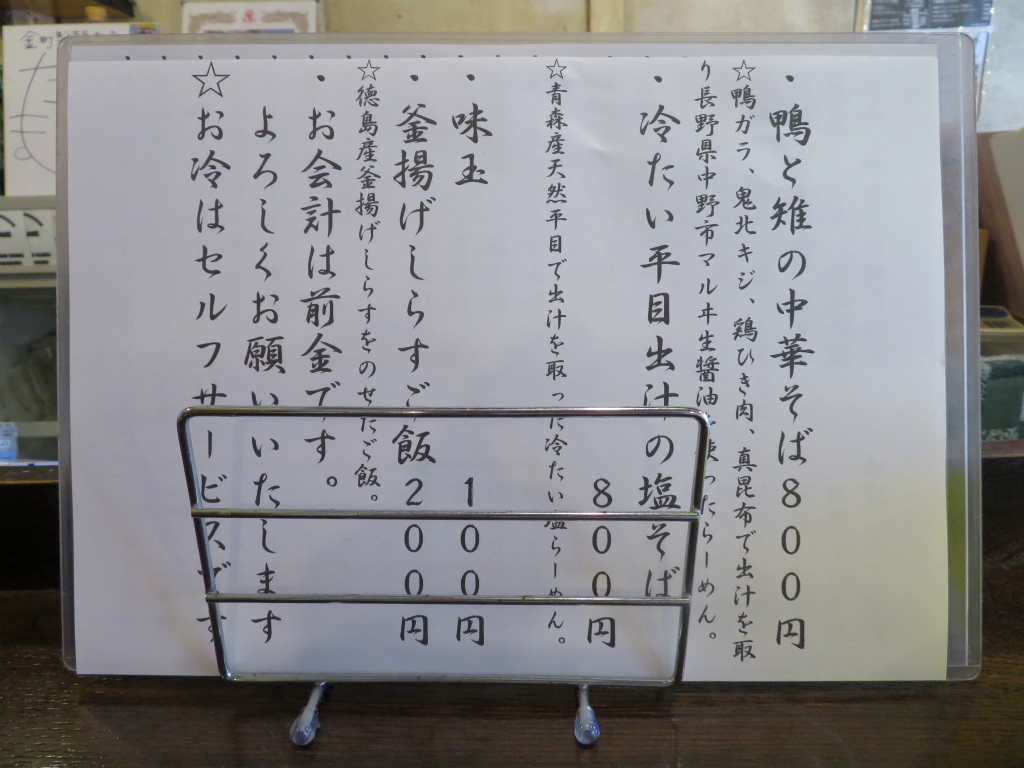 ・鴨と雉の中華そば800円
☆鴨ガラ、鬼北キジ、鶏ひき肉、真昆布で出汁を取
り長野県中野市マルヰ生醤油を使ったらーめん。
・冷たい平目出汁の塩そば
800円
☆青森産天然平目で出汁を取った冷たい塩らーめん。
・味玉 100円
・釜揚げしらすご飯 200円
☆徳島産釜揚げしらすをのせたご飯。
・お会計は前金です。
よろしくお願いいたします
☆お冷はセルフサービスです